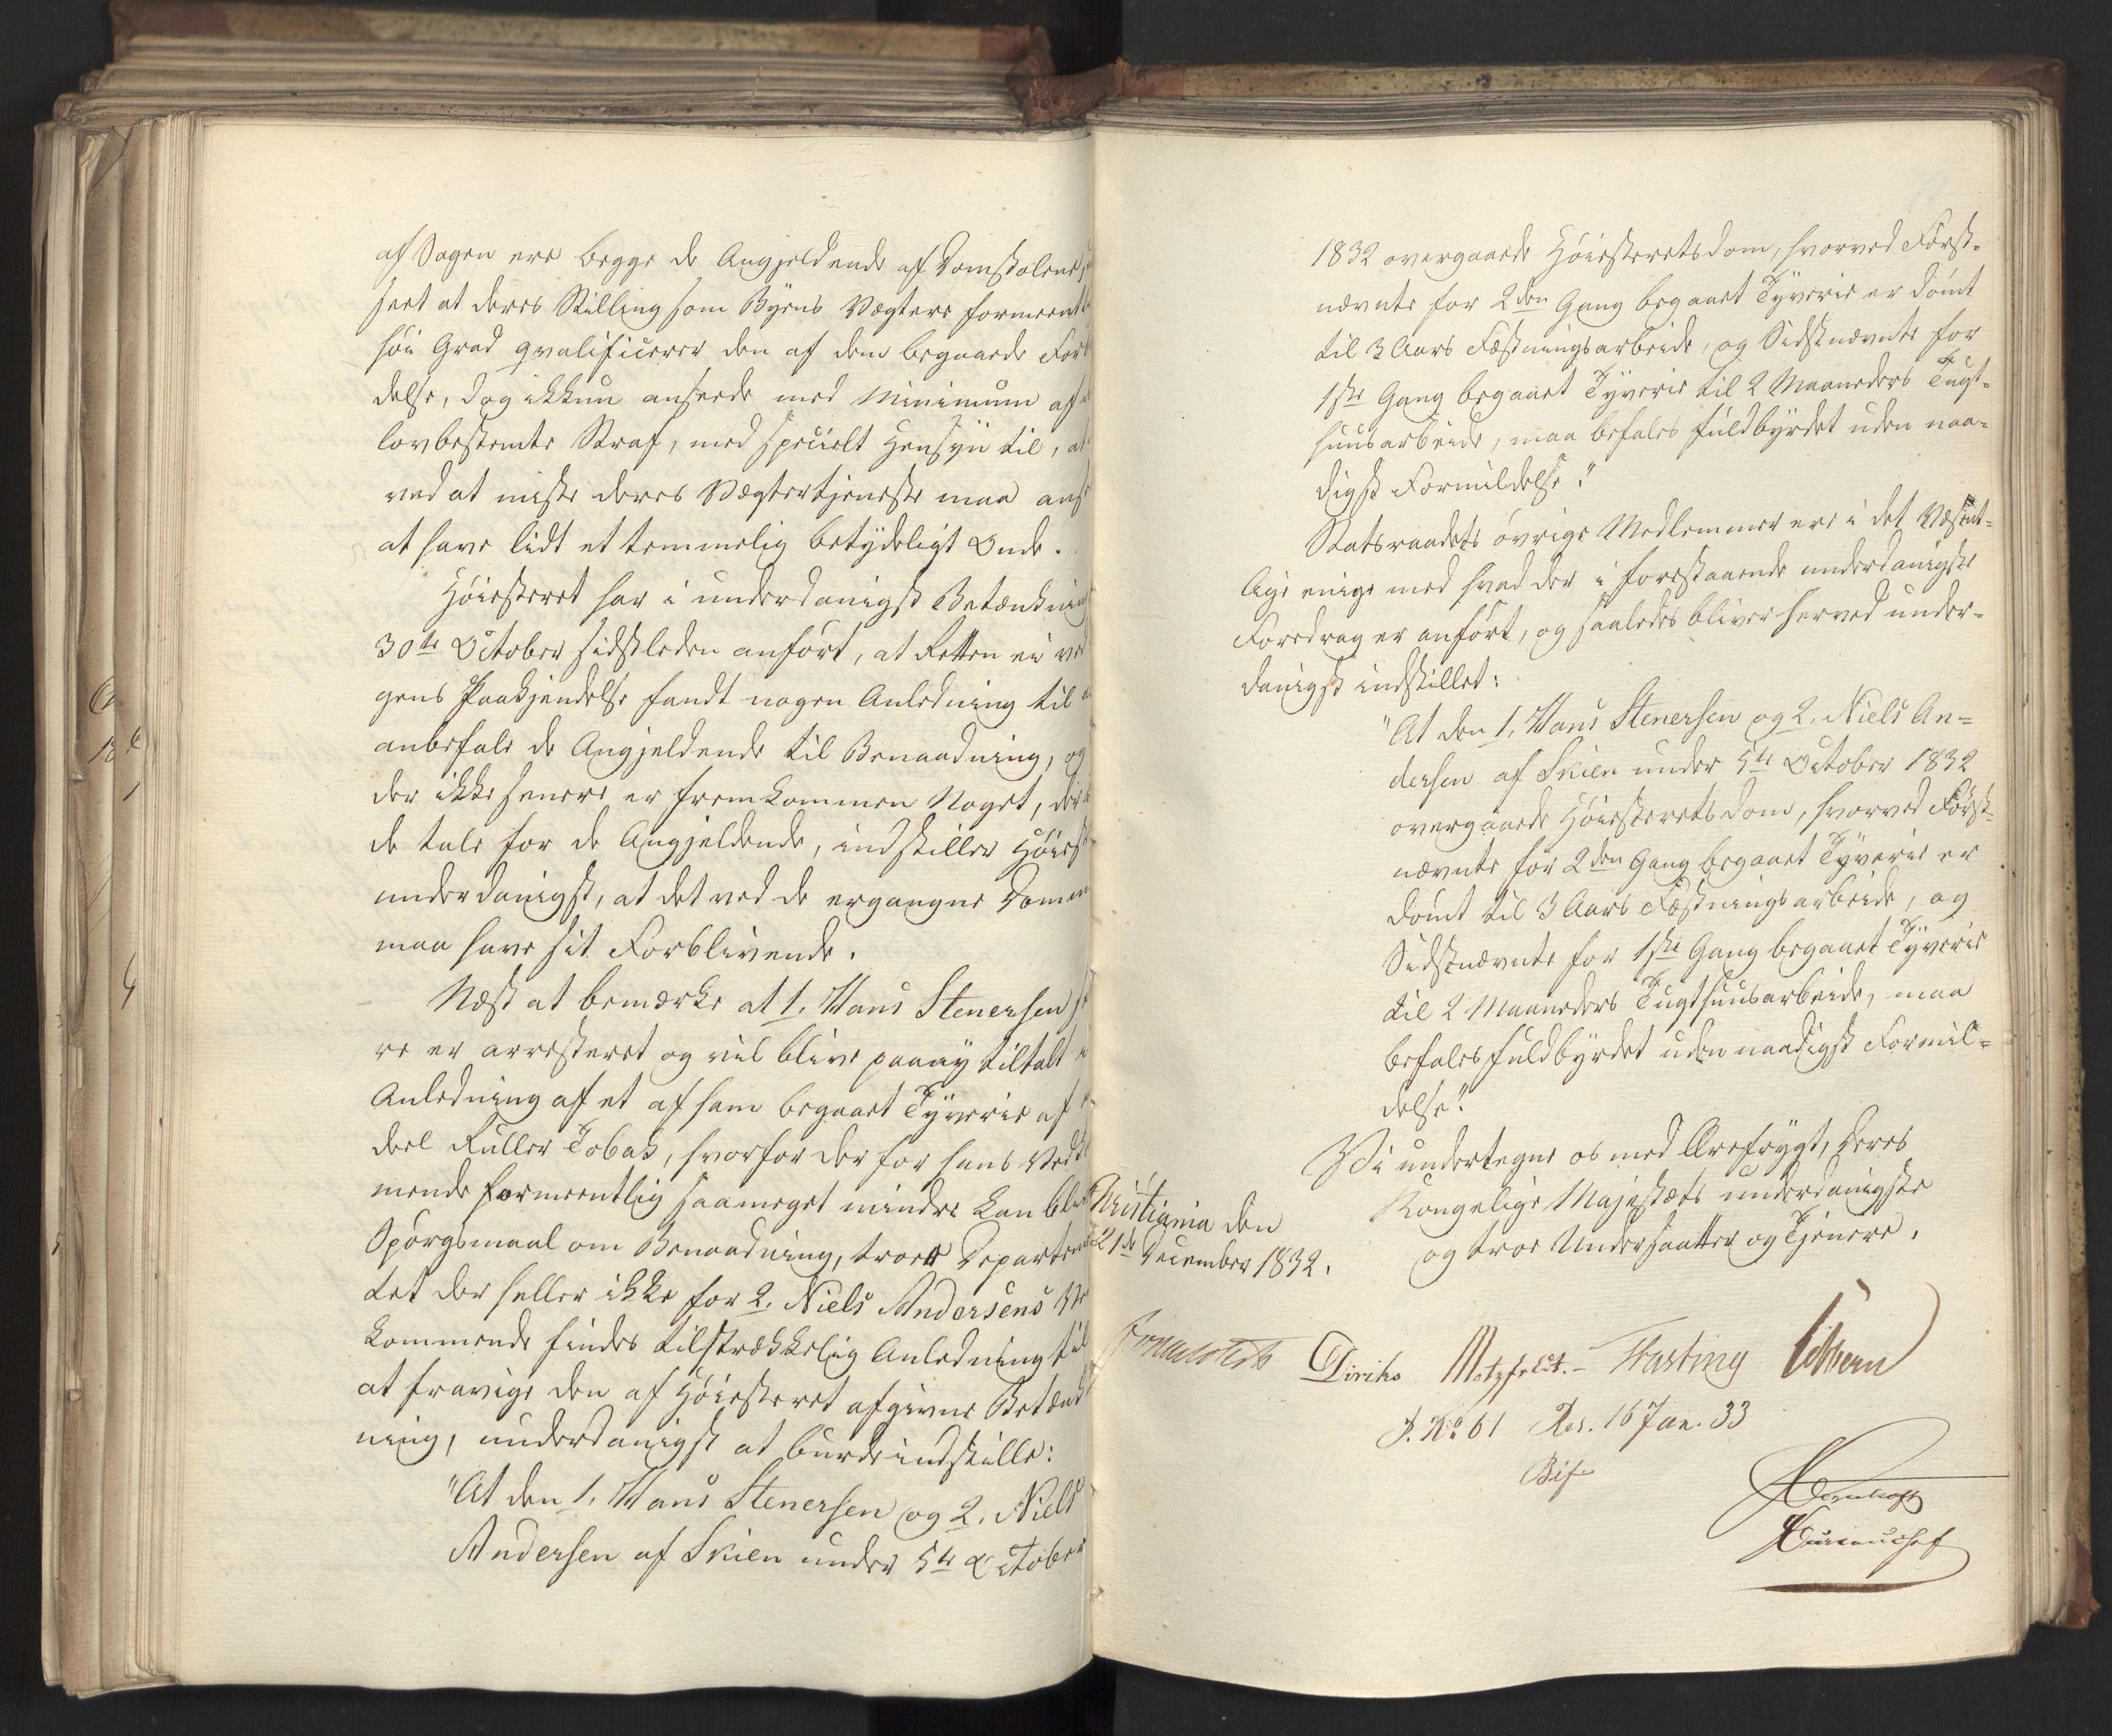 af Sagen ere begge de Angjeldende af Domstolene,
seet at deres Stilling som Byens Vægtere formeent
høi Grad qvalificerer den af dem begaaede For
delse, dog ikkun ansеede med Minimum af
lovbestemte Straf, med specielt Hensyn til, at
ved at miste deres Vægtertjeneste maa anse
at have lidt et temmelig betydeligt Onde.
Høiesteret har i underdanigst Betænkning
30te October sidstleden anført, at Retten ei ved
gens Paakjendelse fandt nogen Anledning til
anbefale de Angjeldende til Benaadning, og
der ikke senere er fremkommen Noget, der
de tale for de Angjeldende, indstiller Høiest
underdanigst, at det ved de ergangne Domme
maa have sit Forblivende.
Næst at bemærke at 1, Hans Stenersen se
re er arresteret og vil blive paany tiltalt
Anledning af et af ham begaaet Tyverie af
deel Ruller Tobak, hvorfor der for hans Vedk
mende formeentlig saameget mindre kan blive
Spørgsmaal om Benaadning, troer Departem
tet der heller ikke for 2, Niels Andersens Ved
kommende findes tilstrækkelig Anledning til
at fravige den af Høiesteret afgivne Betænk
ning, underdanigst at burde indstille:
"At den 1, Hans Stenersen og 2, Niels
Andersen af Skien under 5te October
1832 overgaaede Høiesteretsdom, hvorved Først-
nævnte for 2den Gang begaaet Tyverie er dømt
til 3 Aars Fæstningsarbeide, og Sidstnævnte for
1ste Gang begaaet Tyverie til 2 Maaneders Tugt-
huusarbeide, maa befales fuldbyrdet uden naa-
digst Formildelse."
Statsraadets øvrige Medlemmer ere i det Væsent-
lige enige med hvad der i forestaaende underdanigste
Foredrag er anført, og saaledes bliver herved under-
danigst indstillet:
"At den 1, Hans Stenersen og 2, Niels An-
dersen af Skien under 5te October 1832
overgaaede Høiesteretsdom, hvorved Først-
nævnte for 2den Gang begaaet Tyverie er
dømt til 3 Aars Fæstningsarbeide, og
Sidstnævnte for 1ste Gang begaaet Tyverie
til 2 Maaneders Tugthuusarbeide, maa
befales fuldbyrdet uden naadigst Formil-
delse."
Vi undertegne os med Ærefrygt, Deres
Kongelige Majestæts underdanigste
og troe Undersaatter og Tjenere.
Christiania den
21de December 1832.
Diriks Motzfeldt.- Fasting Vibern
J. No 61 Res. 16 Jan. 33
Bureauchef